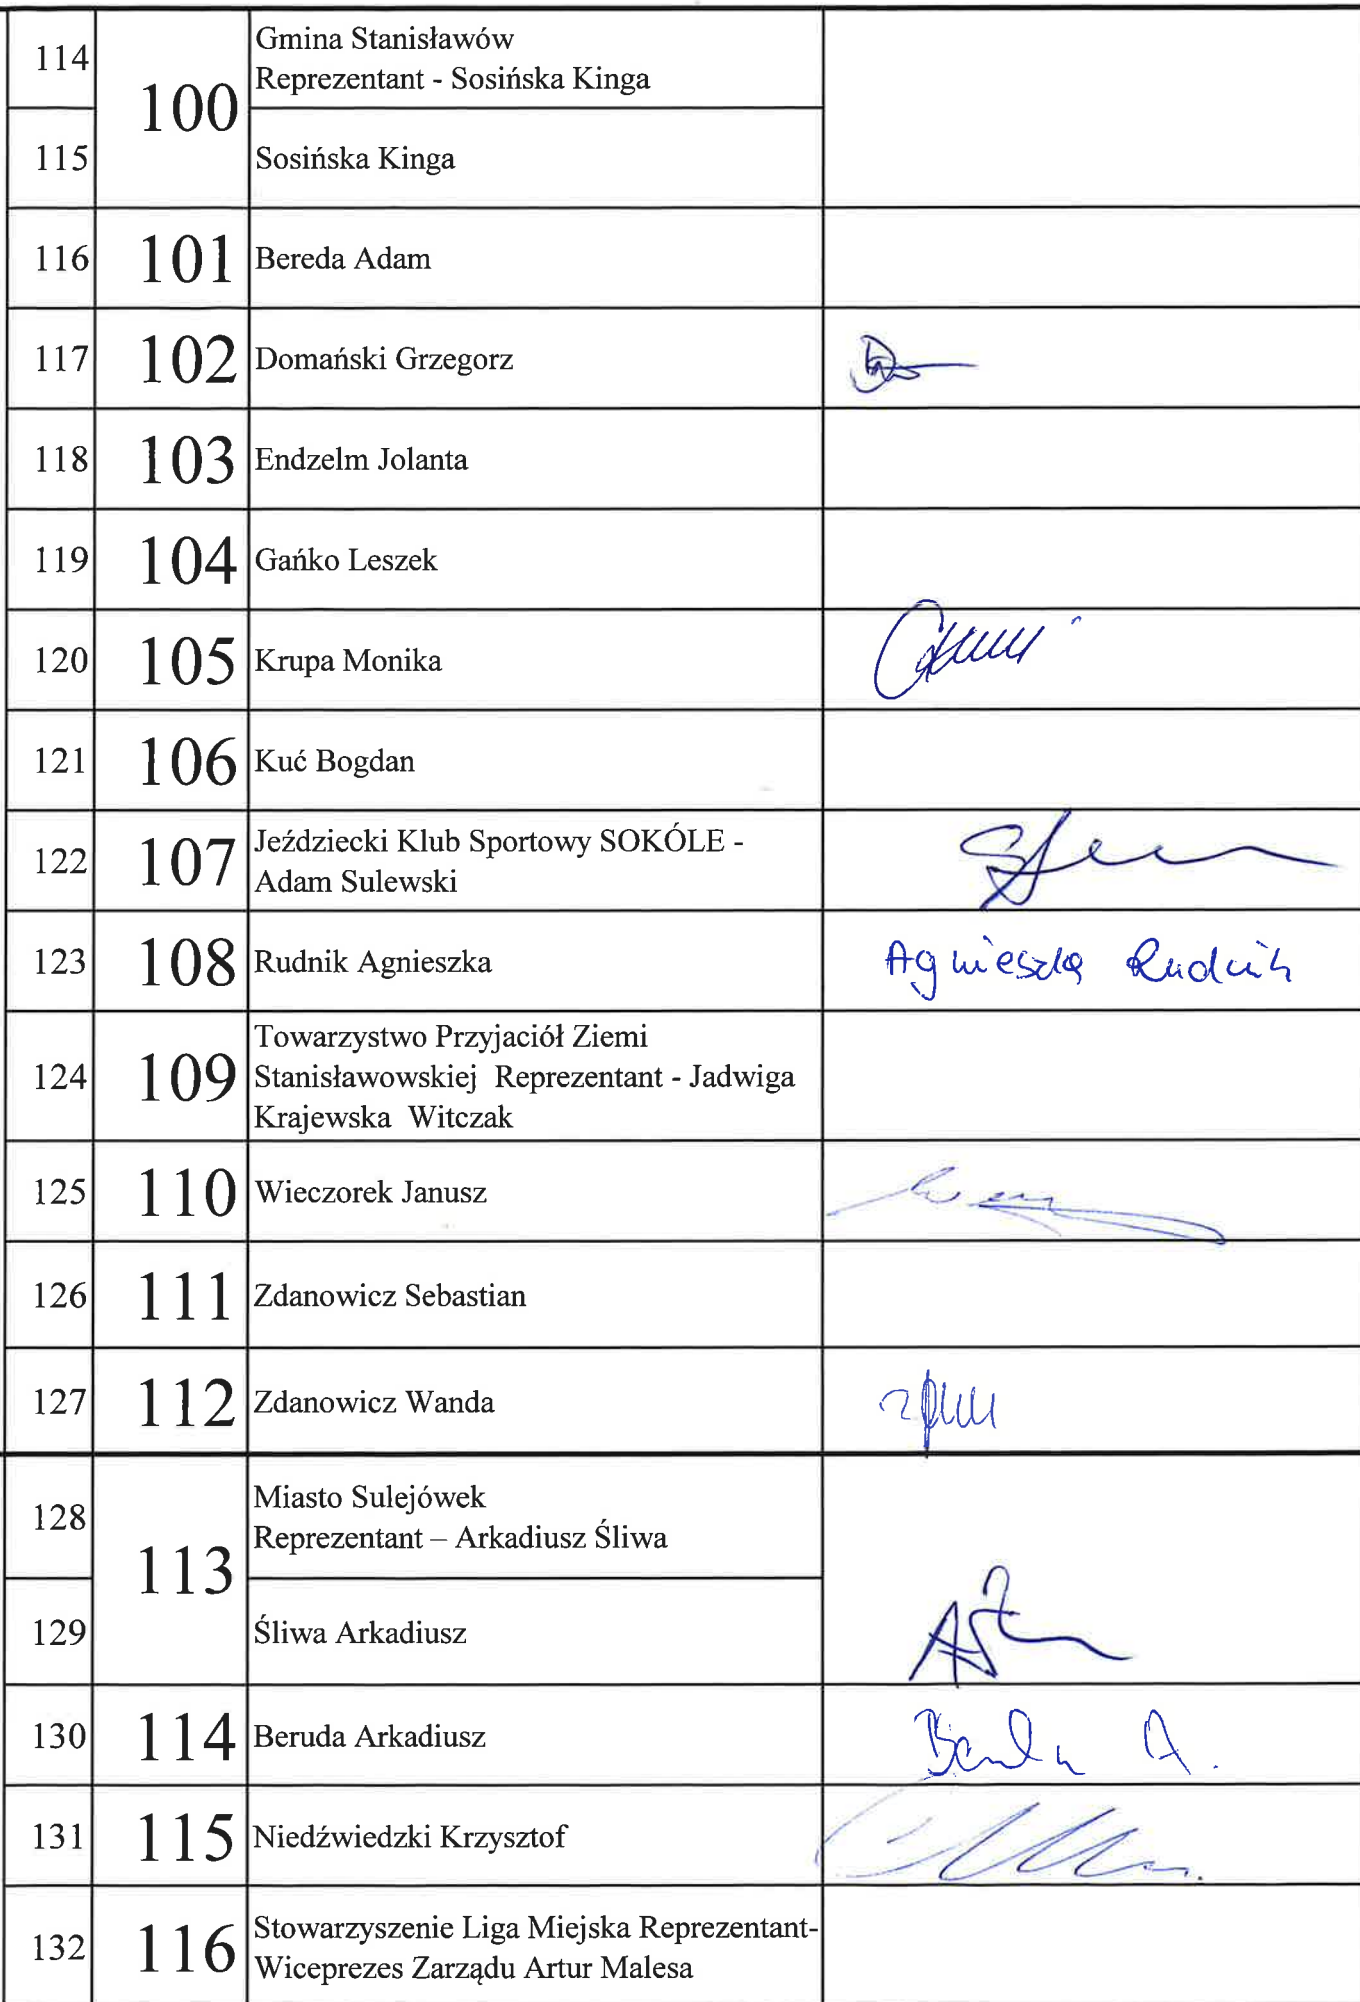 114
100
Gmina Stanisławów
Reprezentant - Sosińska Kinga
115
Sosińska Kinga
116 101 Bereda Adam
117 102 Domański Grzegorz
118 103 Endzelm Jolanta
119 104 Gańko Leszek
120 105 Krupa Monika
121 106 Kuć Bogdan
122 107 Jeździecki Klub Sportowy SOKÓLE -
Adam Sulewski
123 108 Rudnik Agnieszka Agnieszka Rudnik
124 109 Towarzystwo Przyjaciół Ziemi
Stanisławowskiej Reprezentant - Jadwiga
Krajewska Witczak
125 110 Wieczorek Janusz
126 111 Zdanowicz Sebastian
127 112 Zdanowicz Wanda
128
113
Miasto Sulejówek
Reprezentant – Arkadiusz Śliwa
129
Śliwa Arkadiusz
130 114 Beruda Arkadiusz Beruda A.
131 115 Niedźwiedzki Krzysztof
132 116 Stowarzyszenie Liga Miejska Reprezentant-
Wiceprezes Zarządu Artur Malesa